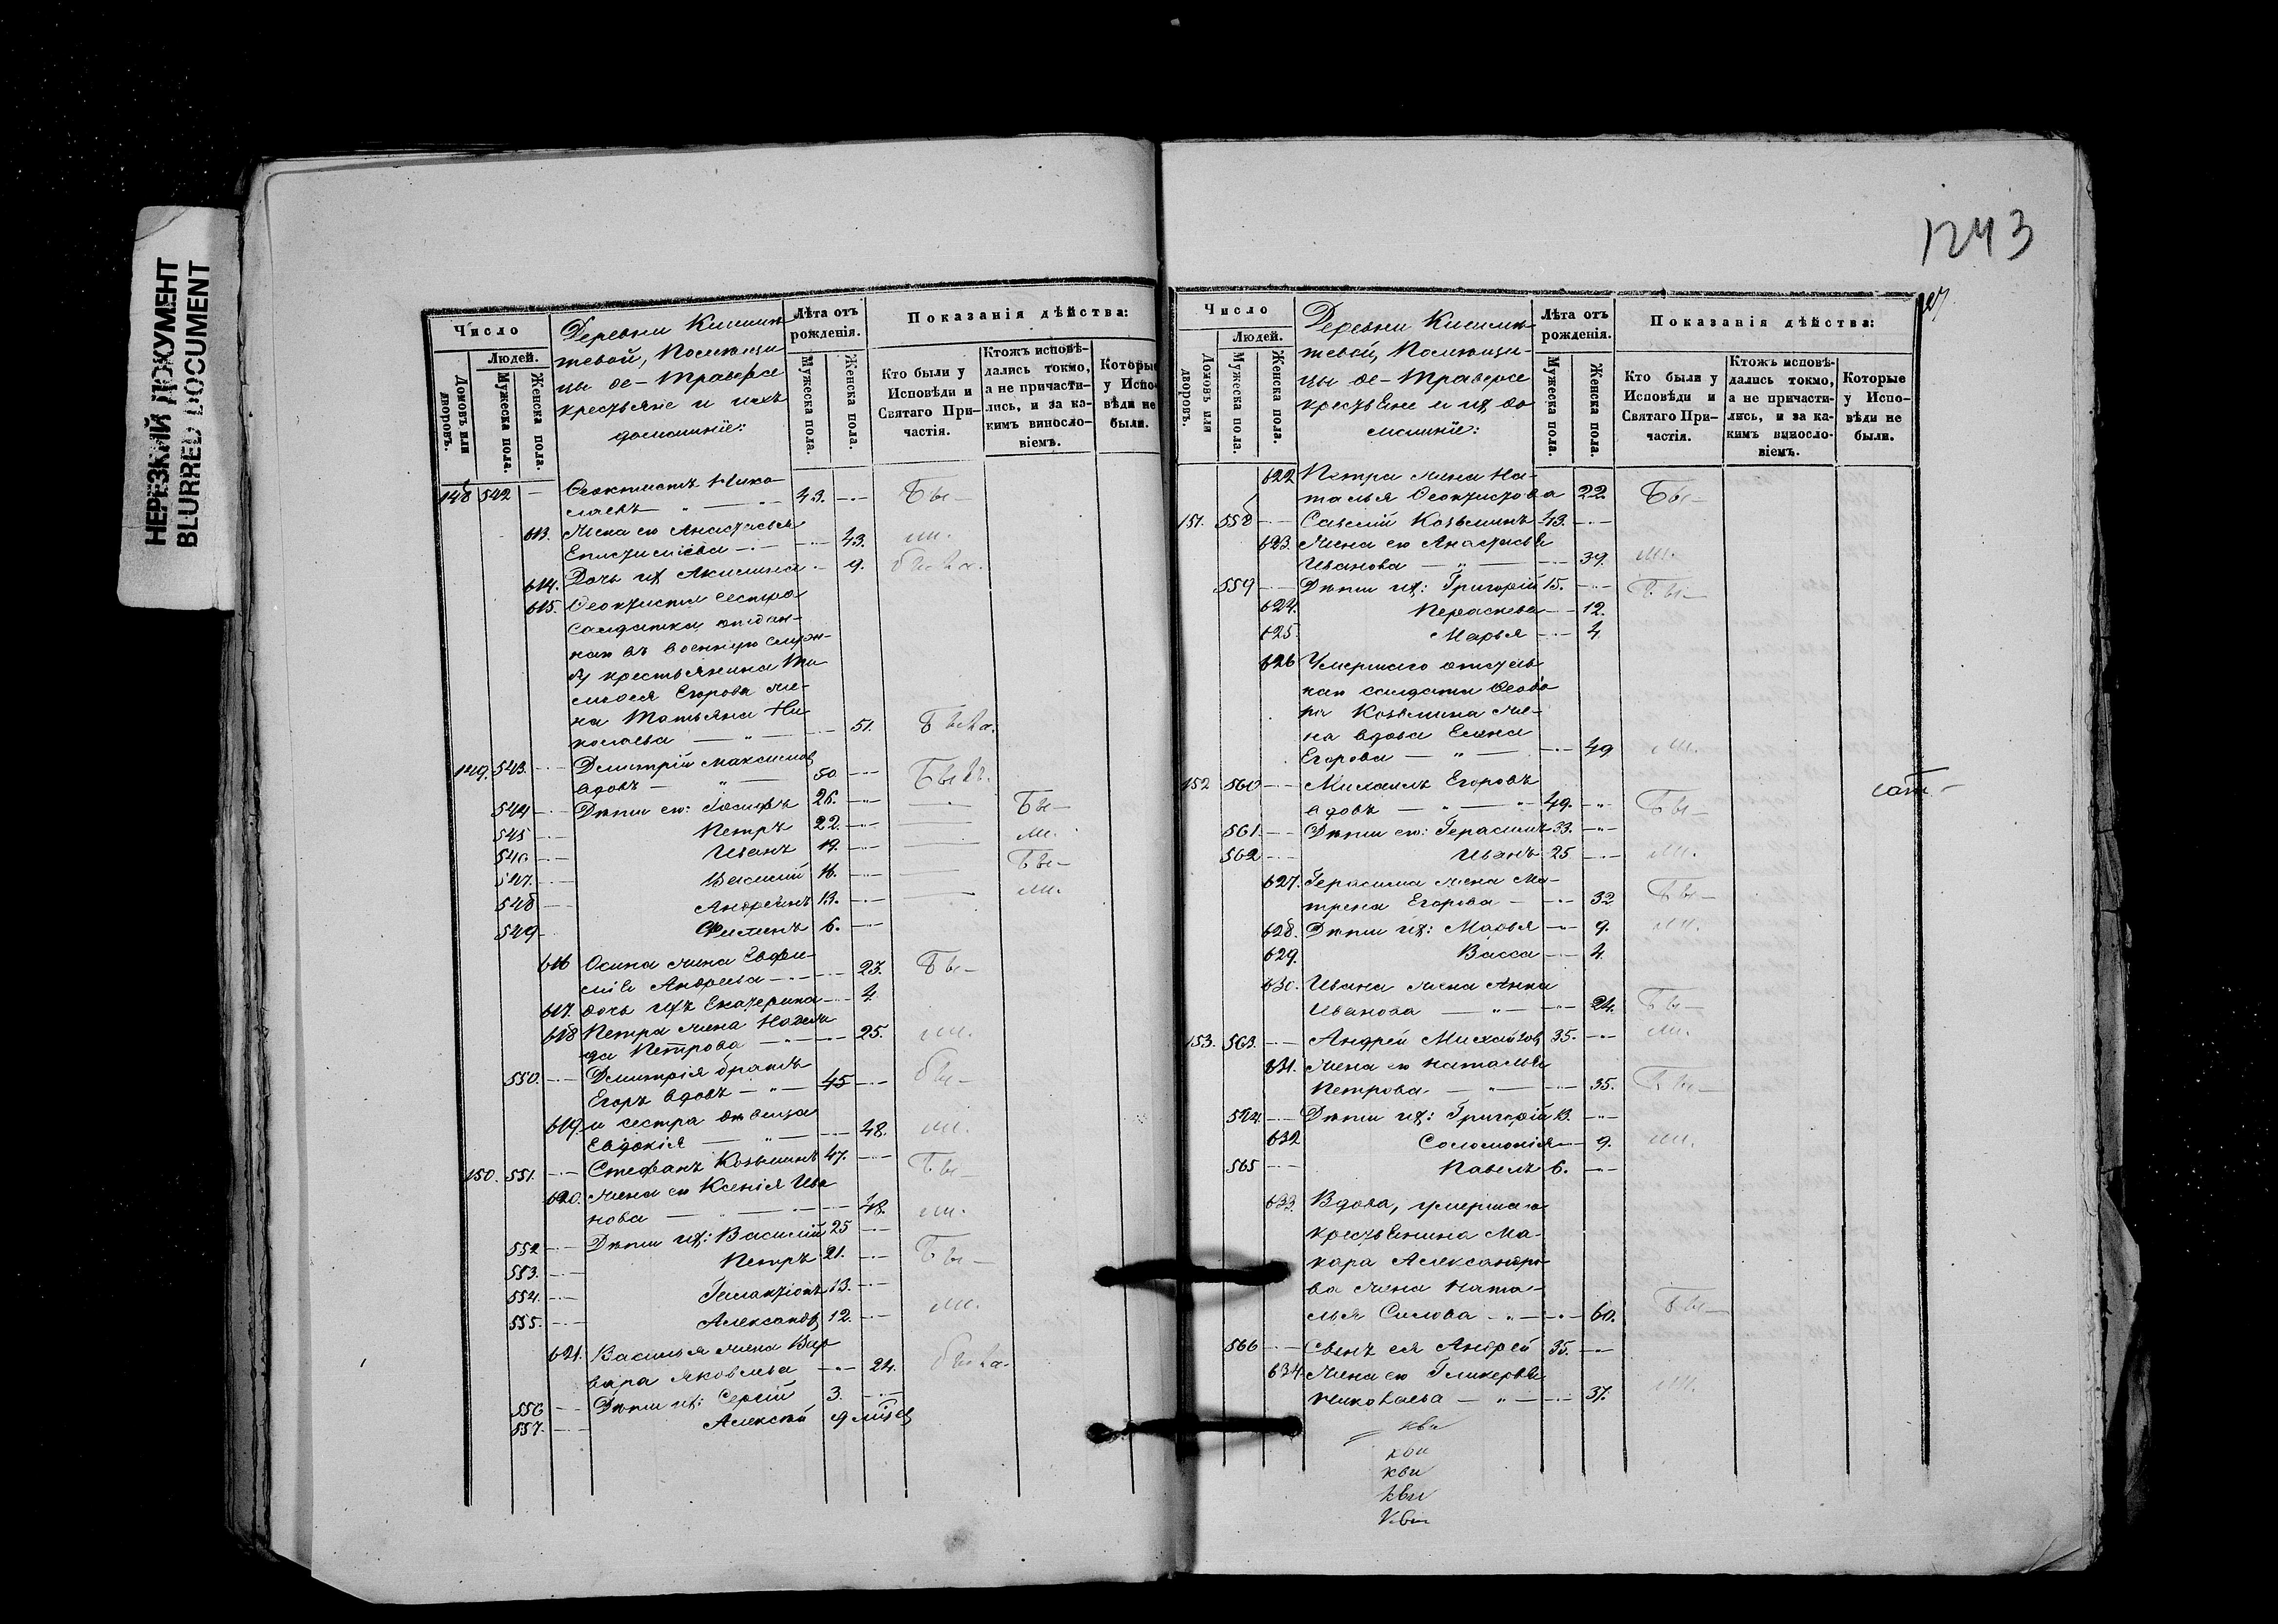 НЕРЕЗКИЙ ДОКУМЕНТ
BLURRED DOCUMENT
1243
Число
Людей.
Домовъ или дворовъ.
Мужеска пола.
Женска пола.
Деревни
тевой, Помѣщи-
цы де-Траверсе
крестьяне и ихъ
домашнiе:
Лѣта отъ рожденiя.
Мужеска пола.
Женска пола.
Показанiя дѣйства:
Кто были у Исповѣди и Святаго Причастiя.
Ктожъ исповѣдались токмо, а не причастились, и за какимъ винословiемъ.
Которые у Исповѣди не были.
148 542 — Ѳеоктистъ Нико-
лаевъ — 43. — Бы—
613. Жена ею Анастасья
Епистимiева — 43.
614. Дочь их Акилина — 9.
615. Ѳеоктиста сестра
солдатка, отдан-
наго въ военную служ-
бу крестьянина Ти-
моѳея Егорова же-
на Татьяна Ни-
колаева — 51.
149. 543. — Дмитрiй Максимов
вдовъ — 50. —
544 — Дѣти ею: Iосифъ 26. — Бы—
545 — Петръ 22. —
546 — Иванъ 19. — Бы—
547. — Василiй 16. —
548 — Андреянъ 13. —
549 — Филипъ 6. —
616 Осипа жена Евфи-
мiя Андреева — 23. Бы—
617. дочь ихъ Екатерина — 4.
618 Петра жена Надеж-
да Петрова — 25.
550. — Дмитрiя братъ
Егоръ вдовъ — 45 — бы—
619. и сестра дѣвица
Евдокiя — 48.
150. 551. — Стефанъ Козьминъ 47. — Бы
620. Жена ею Ксенiя Ива-
нова — 48.
552 — Дѣти их: Василiй 25 —
553. — Петръ 21. — Бы—
554. — Галактiонъ 13. —
555. — Александр 12. —
621. Василья жена Вар-
вара Яковлева — 24.
556 — Дѣти их: Сергiй 3. —
557. — Алексѣй 9 мiсе
Число
Людей.
Домовъ или дворовъ.
Мужеска пола.
Женска пола.
Деревни
тевой, Помѣщи-
цы де-Траверсе
крестьяне и их до-
машнiе:
Лѣта отъ рожденiя.
Мужеска пола.
Женска пола.
Показанiя дѣйства:
Кто были у Исповѣди и Святаго Причастiя.
Ктожъ исповѣдались токмо, а не причастились, и за какимъ винословiемъ.
Которые у Исповѣди не были.
622 Петра жена На-
талья Ѳеоктистова 22. Бы—
151. 558 — Савелiй Козьминъ 43. —
623. Жена ею Анастасья
Иванова — 39.
559 — Дѣти их: Григорiй 15. — Бы—
624. Параскева — 12.
625. Марья — 4
626 Умершаго отстав-
наго солдата Ѳеодо-
ра Козьмина же-
на вдова Елена
Егорова — 49
152 560 — Михаилъ Егоровъ
вдовъ — 49. — Бы—
561. — Дѣти ею: Герасимъ 33. —
562 — Иванъ 25 —
627. Герасима жена Ма-
трена Егорова — 32 Бы—
628. Дѣти их: Марья — 9.
629. Васса — 4
630. Ивана жена Анна
Иванова — 24. Бы—
153. 563. — Андрей Михайлов 35. —
631. Жена ею Наталья
Петрова — 35. Бы—
564. — Дѣти их: Григорiй 13. —
632 Соломонiя — 9.
565 — Павелъ 6. —
633. Вдова, умершаго
крестьянина Ма-
кара Александро-
ва жена Ната-
лья Силова — 60. Бы—
566 — Сынъ ея Андрей 35. —
634. Жена ею Гликерья
Николаева — 37.